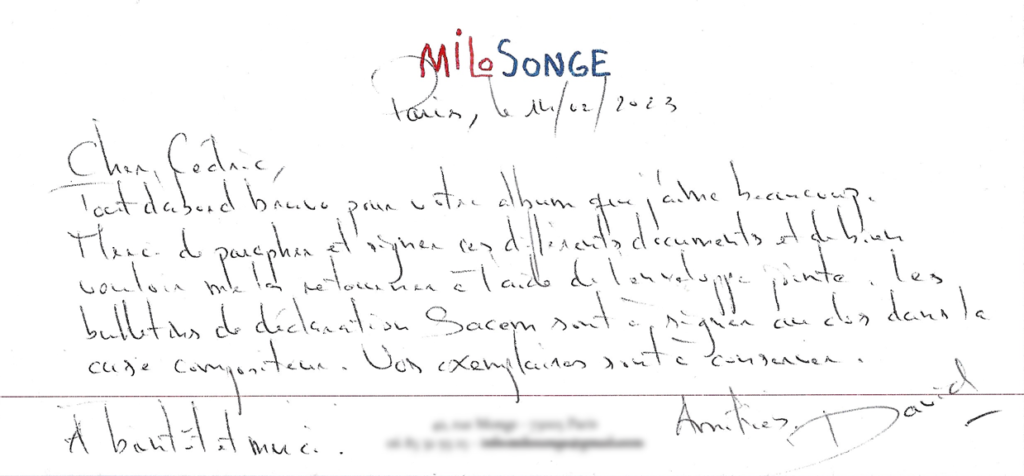 MiLoSONGE
Paris, le 14/02/2023
Cher Cédric,
Tout d'abord bravo pour votre album que j'aime beaucoup.
Merci de parapher et signer ces différents documents et de bien
vouloir me les retourner à l'aide de l'enveloppe jointe. Les
bulletins de déclaration Sacem sont à signer au dos dans la
case compositeur. Vos exemplaires sont à conserver.
À bientôt et merci.
Amitiés, David